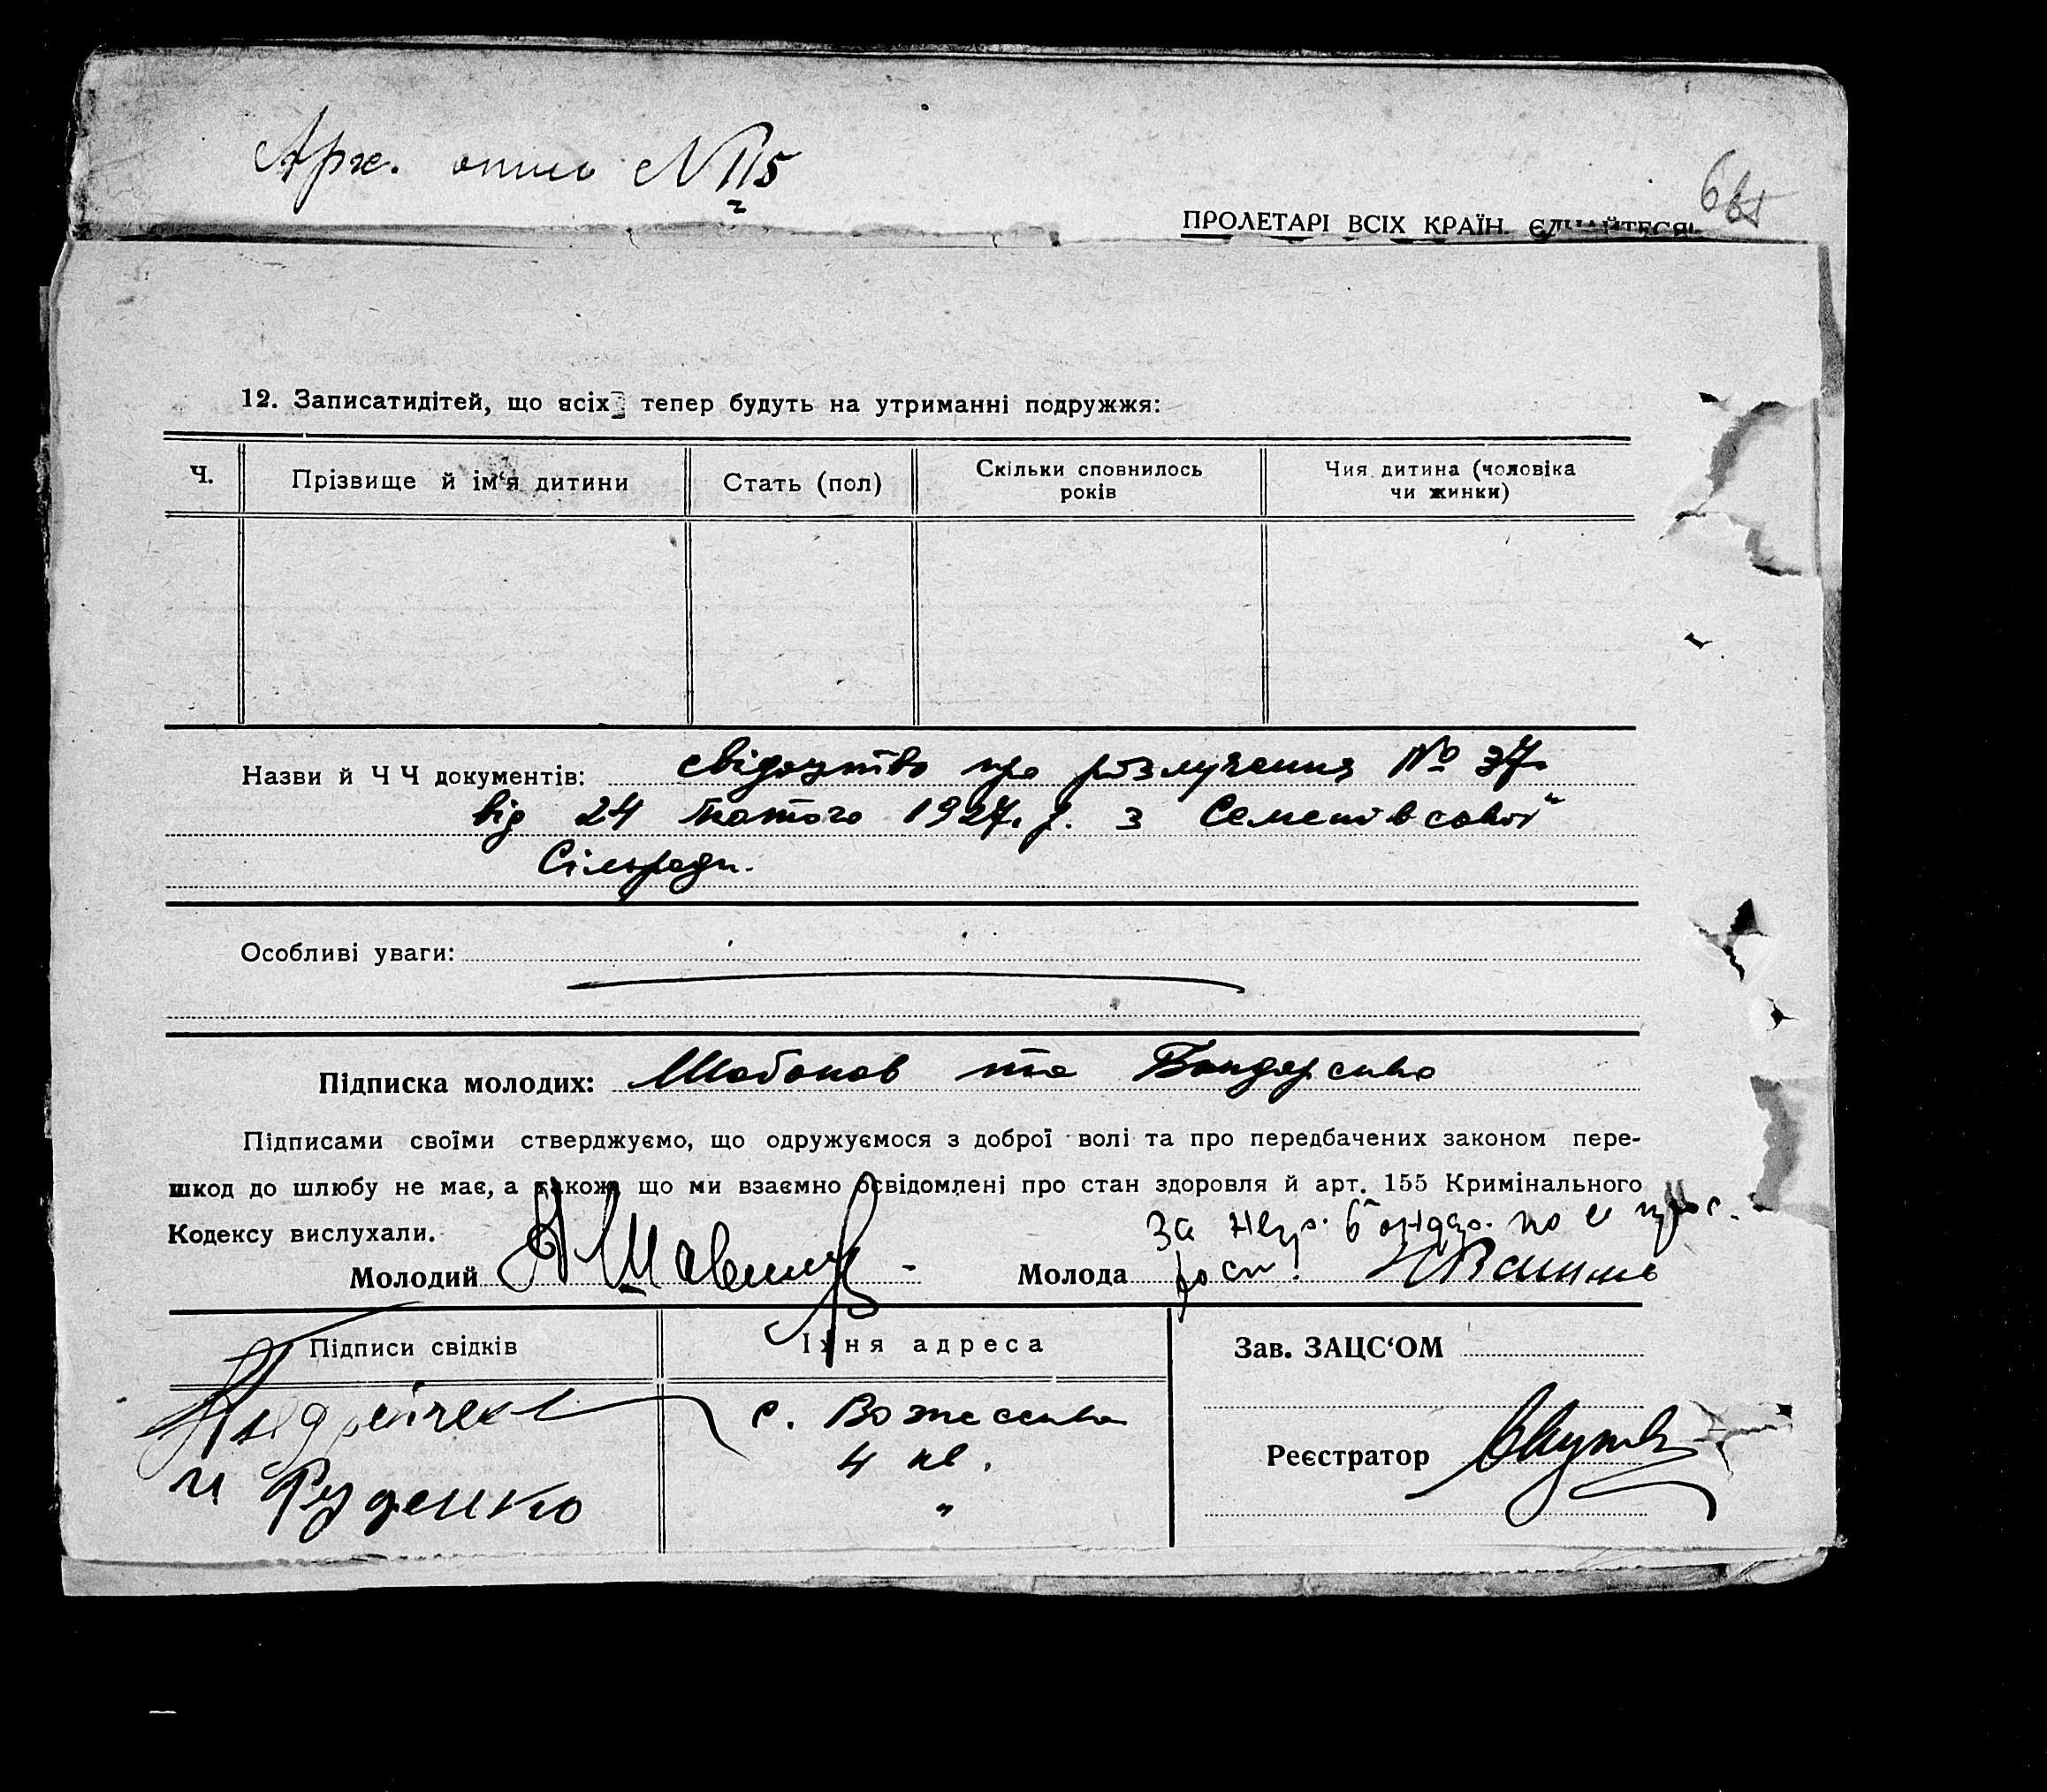 Арх. опись № 115
ПРОЛЕТАРІ ВСІХ КРАЇН, ЄДНАЙТЕСЯ!
12. Записатидітей, що всіх тепер будуть на утриманні подружжя:
Ч.
Прізвище й ім'я дитини
Стать (пол)
Скільки сповнилось
років
Чия дитина (чоловіка
чи жинки)
Назви й Ч Ч документів: свідоцтво про розлучення № 37
від 24 лютого 1927 р. з Семенівської
Сільради.
Особливі уваги:
Підписка молодих: та Бондаренко
Підписами своїми стверджуємо, що одружуємося з доброї волі та про передбачених законом пере-
шкод до шлюбу не має, а також що ми взаємно освідомлені про стан здоровля й арт. 155 Кримінального
Кодексу вислухали.
за
Молодий
Молода
Підписи свідків
Їхня адреса
Зав. ЗАЦС‘ОМ
с. Вознесенка
4 кв.
"
и Руденко
Реєстратор